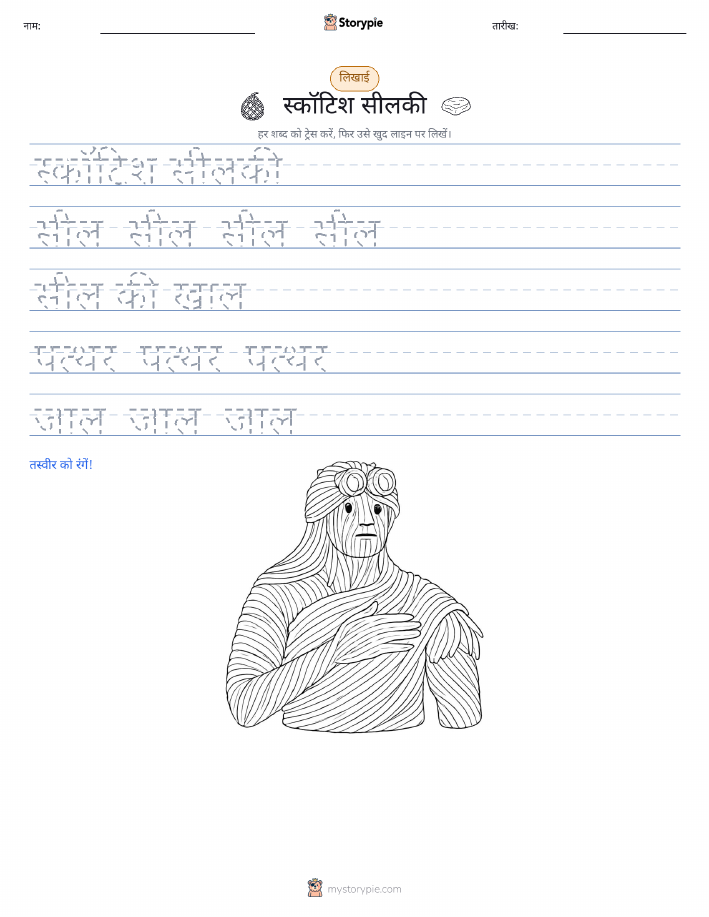 नाम:
Storypie
तारीख:
लिखाई
स्कॉटिश सीलकी
हर शब्द को ट्रेस करें, फिर उसे खुद लाइन पर लिखें।
स्कॉटिश सीलकी
सील सील सील सील
सील की खाल
पत्थर पत्थर पत्थर
जाल जाल जाल
तस्वीर को रंगें!
mystorypie.com